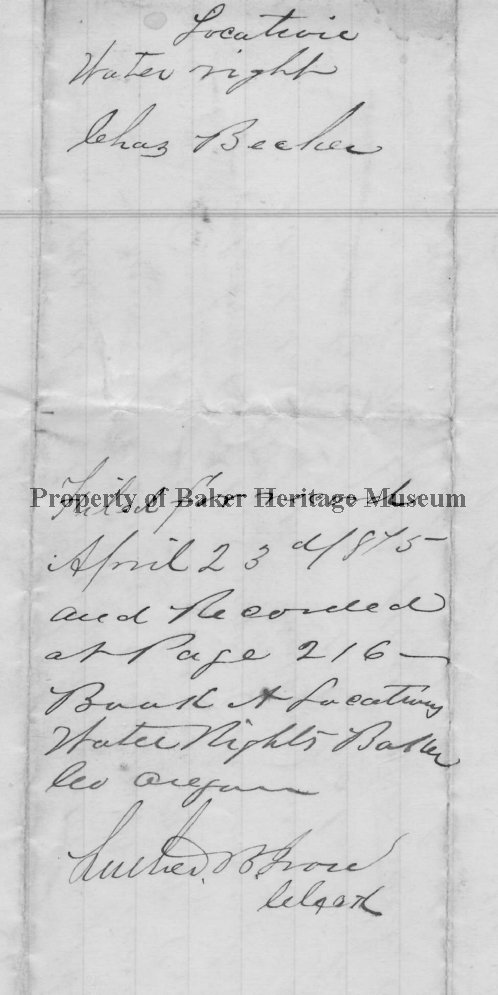 Location
Water right
Chas Becker
Property of Baker Heritage Museum
Filed for record
April 23d 1875
and Recorded
at Page 216 –
Book A Locations
Water Rights Baker
Co Oregon
Luther B. Ison
Clerk